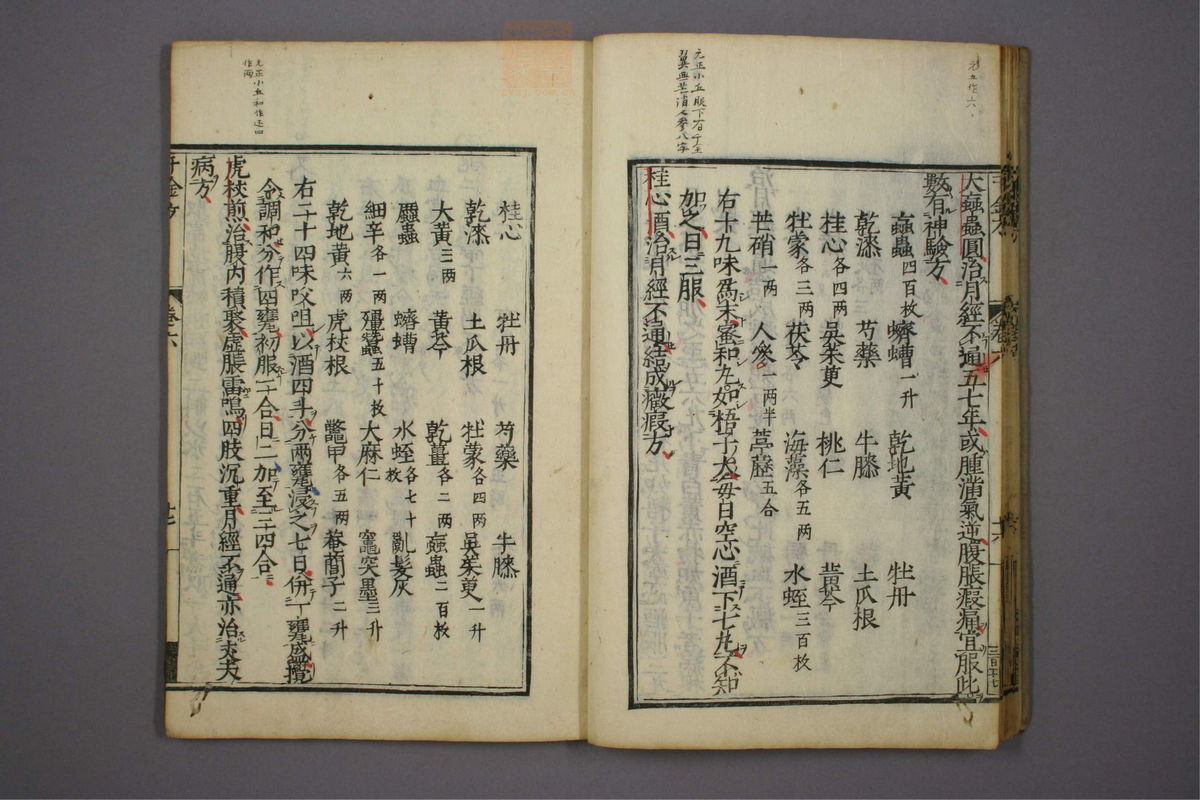 元五作六
大蝱蟲圓治月經不通五七年或腫滿氣逆腹脹瘕痛宜服此
數有神驗方
蝱蟲四百枚 蠐螬一升 乾地黃 牡丹
乾漆 芍藥 牛膝 土瓜根
桂心各四两 吳茱萸 桃仁 黃芩
牡蒙各三两 茯苓 海藻各五两 水蛭三百枚
芒硝一两 人參一两半 葶藶五合
右十九味爲末蜜和丸如梧子大每日空心酒下七丸不知
加之日三服
桂心酒治月經不通結成癥瘕方
元正小五
桂心 牡丹 芍藥 牛膝
乾漆 土瓜根 牡蒙各四两 吳茱萸一升
大黃三两 黃芩 乾薑各二两 蝱蟲二百枚
䗪蟲 蠐螬 水蛭各七十枚 亂髮灰
細辛各一两 殭蠶五十枚 大麻仁 竈突墨三升
乾地黃六两 虎杖根 鼈甲各五两 菴䕡子二升
右二十四味㕮咀以酒四斗分两甕浸之七日併一甕盛攪
令調和分作四甕初服二合日二加至三四合
虎杖煎治腹内積聚虛脹雷鳴四肢沉重月經不通亦治丈夫
病方
千金方
卷六